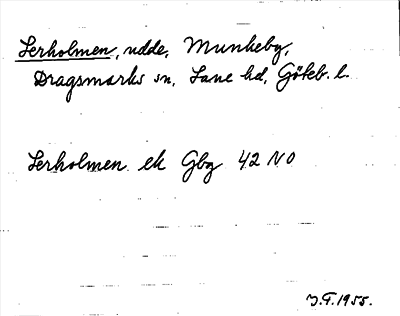 Lerholmen, udde, Munkeby,
Dragsmarks sn, Lane hd, Göteb. l.
Lerholmen ek Gbg 42 NO
J.F. 1955.